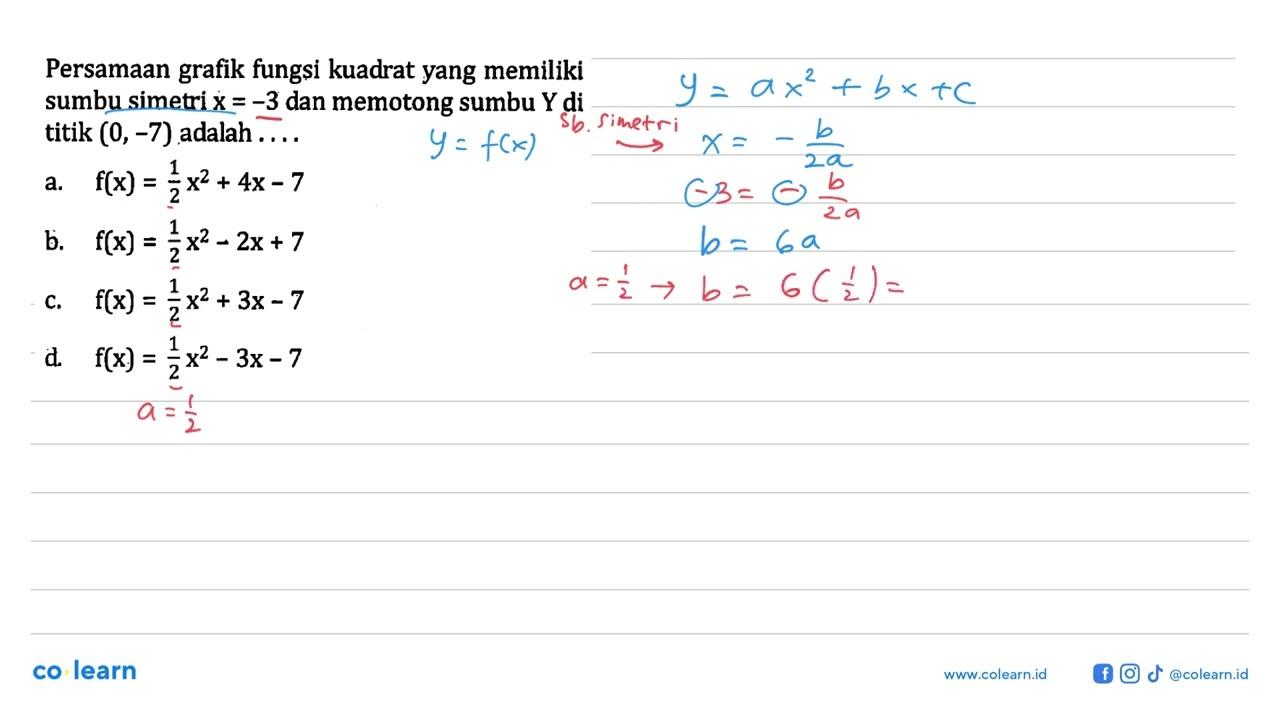 Persamaan grafik fungsi kuadrat yang memiliki
sumbu simetri x = –3 dan memotong sumbu Y di
titik (0, –7) adalah . . . .
a. f(x) = 1/2 x² + 4x – 7
b. f(x) = 1/2 x² – 2x + 7
c. f(x) = 1/2 x² + 3x – 7
d. f(x) = 1/2 x² – 3x – 7
a = 1/2
y = f(x)
y = ax² + bx + c
sb. simetri → x = - b/2a
-3 = - b/2a
b = 6a
a = 1/2 → b = 6 (1/2) =
co learn
www.colearn.id
@colearn.id